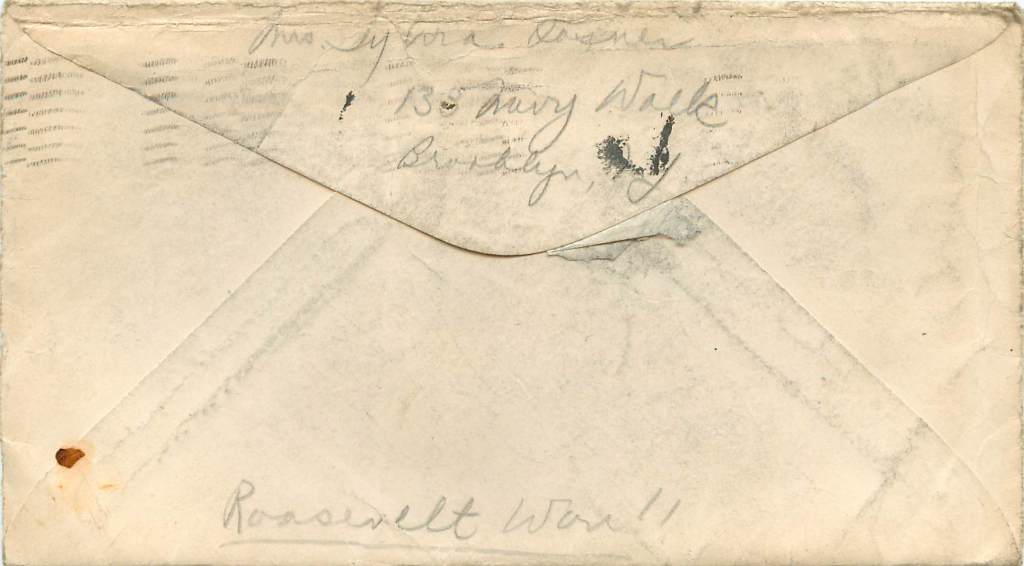 Mrs. Sylvia Rosner
135 Navy Walk
Brooklyn, N.Y.
Roosevelt Won!!